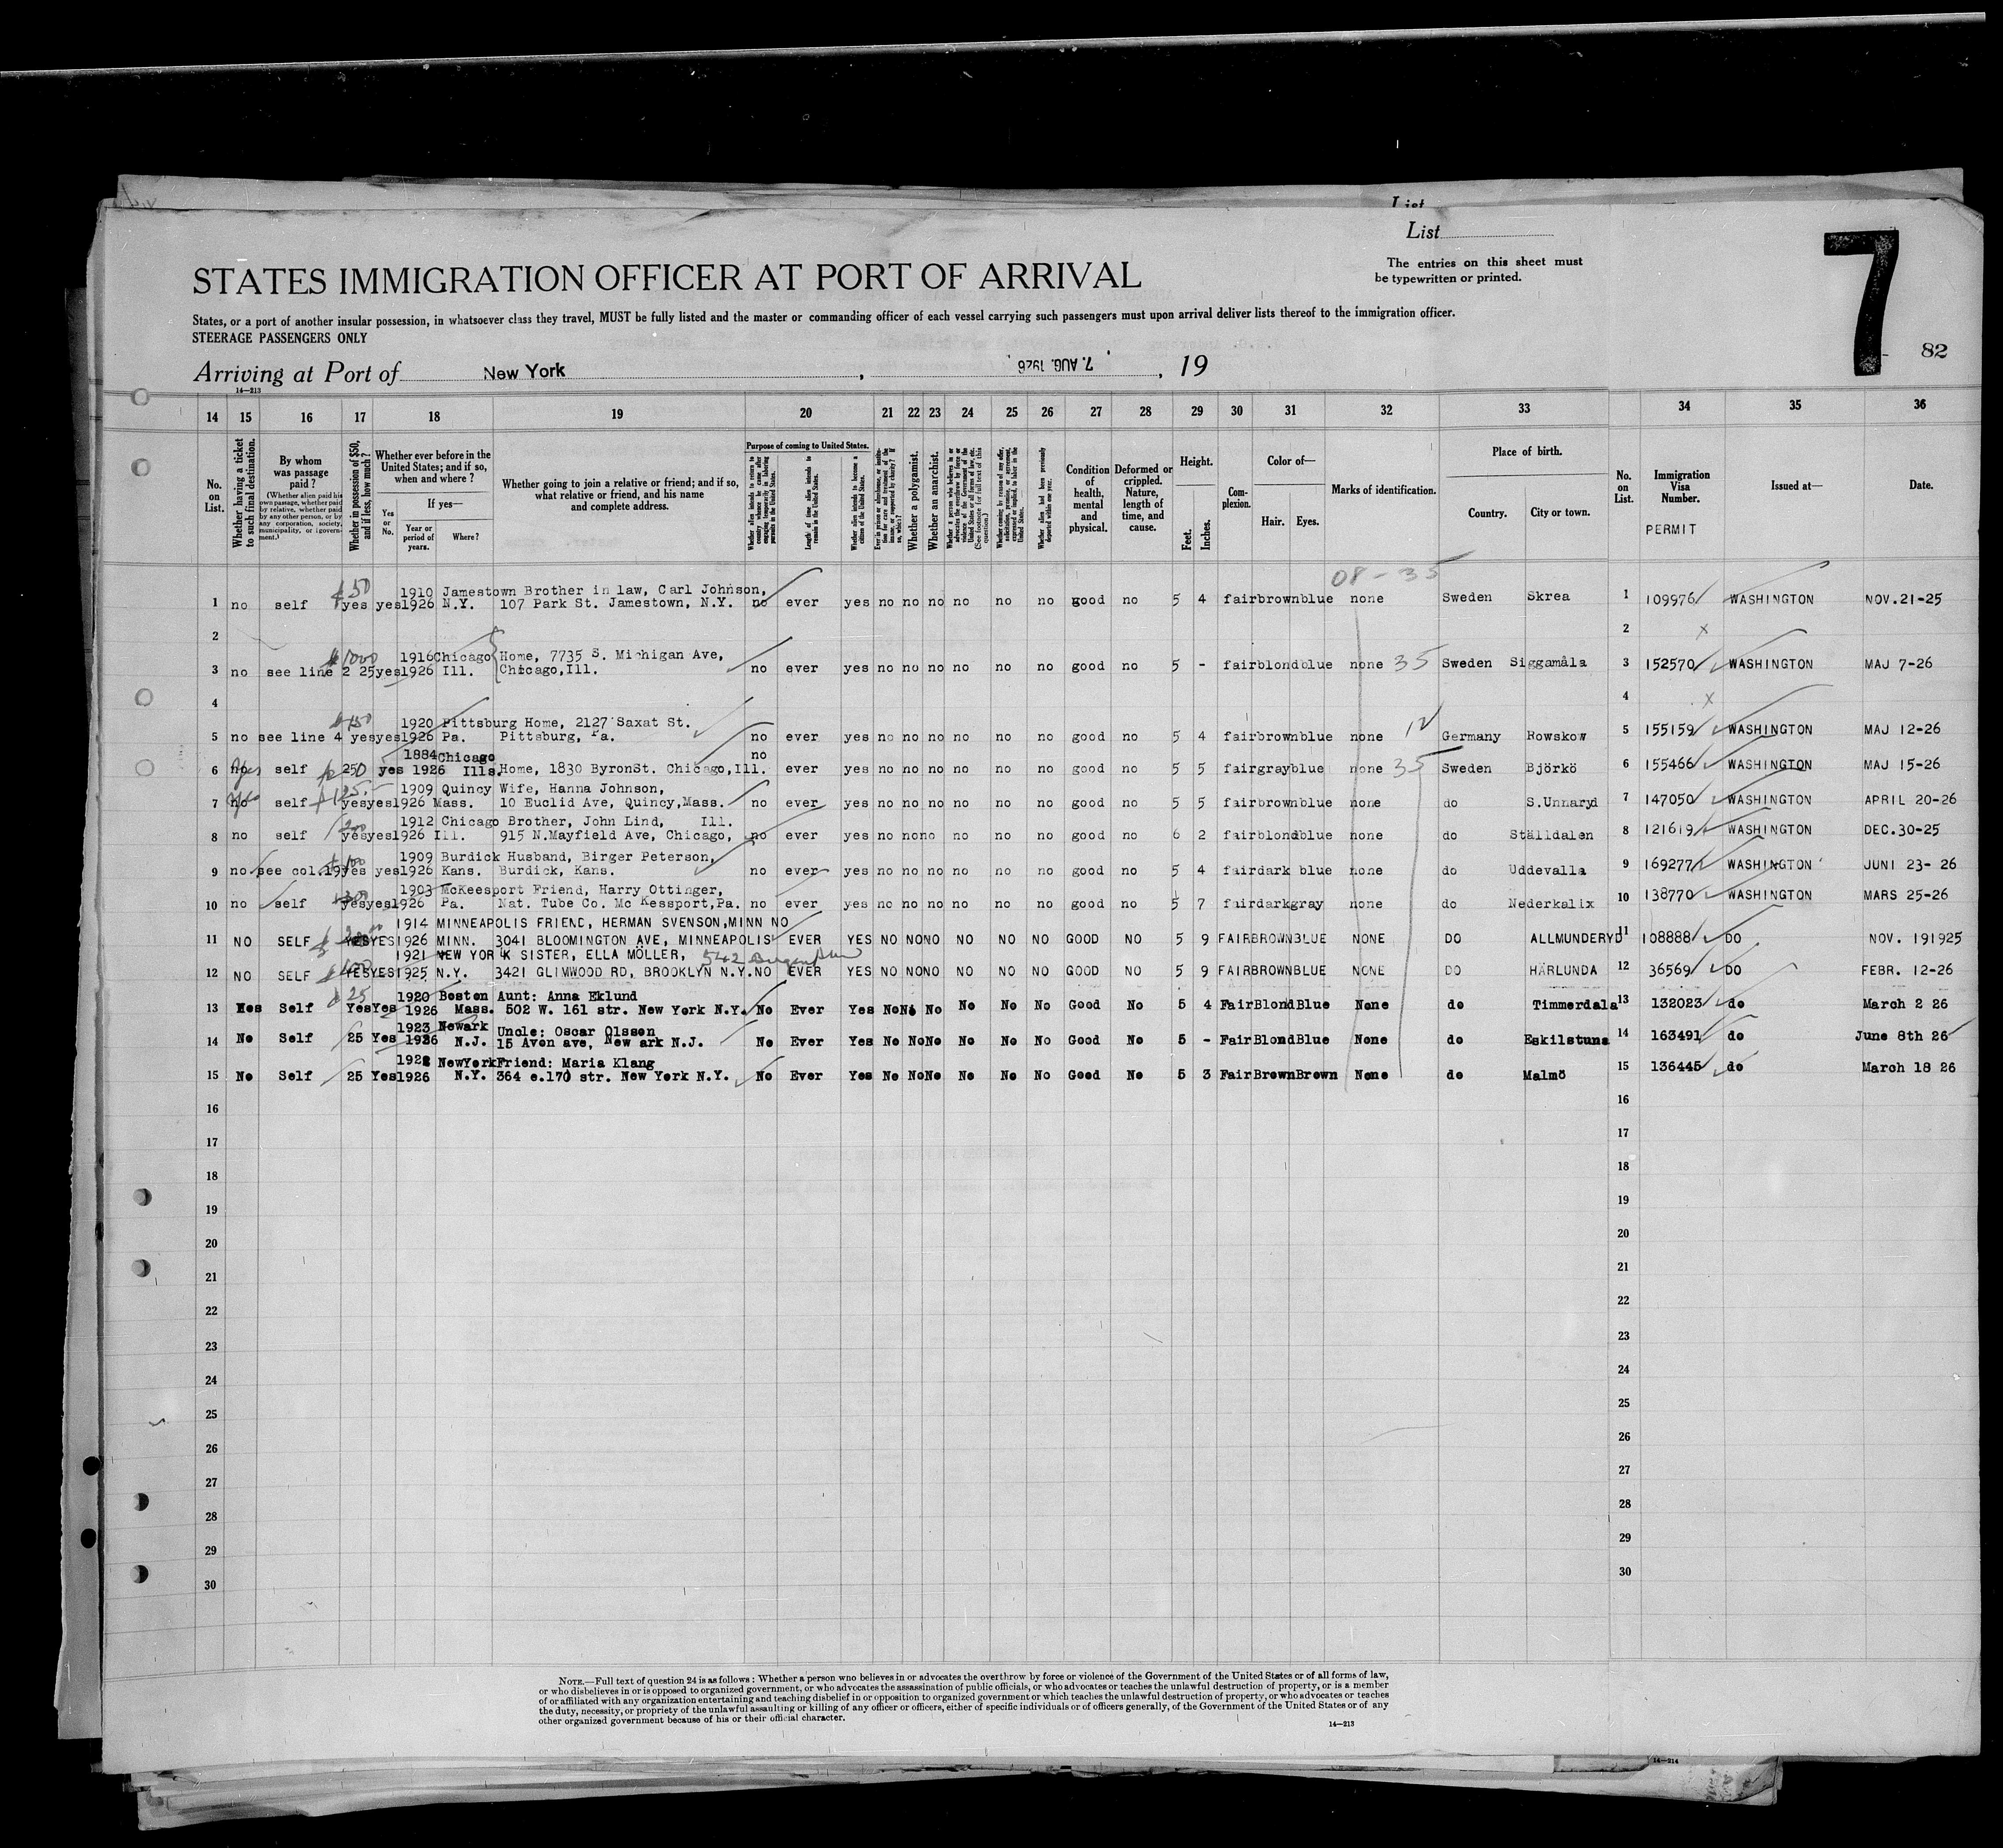 List
List
The entries on this sheet must
be typewritten or printed.
7
82
STATES IMMIGRATION OFFICER AT PORT OF ARRIVAL
States, or a port of another insular possession, in whatsoever class they travel, MUST be fully listed and the master or commanding officer of each vessel carrying such passengers must upon arrival deliver lists thereof to the immigration officer.
STEERAGE PASSENGERS ONLY
Arriving at Port of New York, 7. AUG. 1926, 19
14—213
14 15 16 17 18 19 20 21 22 23 24 25 26 27 28 29 30 31 32 33 34 35 36
No. on List.
Whether having a ticket to such final destination.
By whom was passage paid?
(Whether alien paid his own passage, whether paid by relative, whether paid by any other person, or by any corporation, society, municipality, or government.)
Whether in possession of $50, and if less, how much?
Whether ever before in the United States; and if so, when and where?
Yes or No.
If yes—
Year or period of years.
Where?
Whether going to join a relative or friend; and if so, what relative or friend, and his name and complete address.
Purpose of coming to United States.
Whether alien intends to return to country whence he came after engaging temporarily in laboring pursuits in the United States.
Length of time alien intends to remain in the United States.
Whether alien intends to become a citizen of the United States.
Ever in prison or almshouse, or institution for care and treatment of the insane, or supported by charity? If so, which?
Whether a polygamist.
Whether an anarchist.
Whether a person who believes in or advocates the overthrow by force or violence of the Government of the United States or all forms of law, etc. (See footnote for full text of this question.)
Whether coming by reason of any offer, solicitation, promise, or agreement, expressed or implied, to labor in the United States.
Whether alien had been previously deported within one year.
Condition of health, mental and physical.
Deformed or crippled. Nature, length of time, and cause.
Height.
Feet.
Inches.
Complexion.
Color of—
Hair. Eyes.
Marks of identification.
Place of birth.
Country.
City or town.
No. on List.
Immigration Visa Number.
PERMIT
Issued at—
Date.
08 - 35
$50
1910 Jamestown Brother in law, Carl Johnson,
1 no self yes yes 1926 N.Y. 107 Park St. Jamestown, N.Y. no ever yes no no no no no no good no 5 4 fair brown blue none Sweden Skrea 1 109976 WASHINGTON NOV.21-25
2 2 x
$1000 1916 Chicago Home, 7735 S. Michigan Ave,
3 no see line 2 25 yes 1926 Ill. Chicago, Ill. no ever yes no no no no no no good no 5 - fair blond blue none 35 Sweden Siggamåla 3 152570 WASHINGTON MAJ 7-26
4 4 x
$150 1920 Pittsburg Home, 2127 Saxat St.
5 no see line 4 yes yes 1926 Pa. Pittsburg, Pa. no ever yes no no no no no no good no 5 4 fair brown blue none 12 Germany Rowskow 5 155159 WASHINGTON MAJ 12-26
1884 Chicago no
6 no yes self 250 yes 1926 Ills. Home, 1830 Byron St. Chicago, Ill. ever yes no no no no no no good no 5 5 fair gray blue none 35 Sweden Björkö 6 155466 WASHINGTON MAJ 15-26
$125.- 1909 Quincy Wife, Hanna Johnson,
7 no yes self yes yes 1926 Mass. 10 Euclid Ave, Quincy, Mass. no ever yes no no no no no no good no 5 5 fair brown blue none do S.Unnaryd 7 147050 WASHINGTON APRIL 20-26
200 1912 Chicago Brother, John Lind, Ill.
8 no self yes yes 1926 Ill. 915 N.Mayfield Ave, Chicago, no ever yes no no no no no no good no 6 2 fair blond blue none do Ställdalen 8 121619 WASHINGTON DEC.30-25
$100 1909 Burdick Husband, Birger Peterson,
9 no see col.19 yes yes 1926 Kans. Burdick, Kans. no ever yes no no no no no no good no 5 4 fair dark blue none do Uddevalla 9 169277 WASHINGTON JUNI 23-26
1903 McKeesport Friend, Harry Ottinger,
10 no self yes yes 1926 Pa. Nat. Tube Co. Mc Kessport, Pa. no ever yes no no no no no no good no 5 7 fair dark gray none do Nederkalix 10 138770 WASHINGTON MARS 25-26
1914 MINNEAPOLIS FRIEND, HERMAN SVENSON, MINN NO
11 NO SELF YES YES 1926 MINN. 3041 BLOOMINGTON AVE, MINNEAPOLIS EVER YES NO NO NO NO NO NO GOOD NO 5 9 FAIR BROWN BLUE NONE DO ALLMUNDERYD 11 108888 DO NOV. 191925
1921 NEW YORK SISTER, ELLA MÖLLER, 542 Bergen Ave
12 NO SELF $100 YES YES 1925 N.Y. 3421 GLIMWOOD RD, BROOKLYN N.Y. NO EVER YES NO NO NO NO NO NO GOOD NO 5 9 FAIR BROWN BLUE NONE DO HÄRLUNDA 12 36569 DO FEBR. 12-26
$25 1920 Boston Aunt: Anna Eklund
13 Yes Self Yes Yes 1926 Mass. 502 W. 161 str. New York N.Y. No Ever Yes No No No No No No Good No 5 4 Fair Blond Blue None do Timmerdala 13 132023 do March 2 26
1923 Newark Uncle: Oscar Olsson
14 No Self 25 Yes 1926 N.J. 15 Avon ave, New ark N.J. No Ever Yes No No No No No No Good No 5 - Fair Blond Blue None do Eskilstuna 14 163491 do June 8th 26
1922 New York Friend: Maria Klang
15 No Self 25 Yes 1926 N.Y. 364 e.170 str. New York N.Y. No Ever Yes No No No No No No Good No 5 3 Fair Brown Brown None do Malmö 15 136445 do March 18 26
16 16
17 17
18 18
19 19
20 20
21 21
22 22
23 23
24 24
25 25
26 26
27 27
28 28
29 29
30 30
NOTE.—Full text of question 24 is as follows: Whether a person who believes in or advocates the overthrow by force or violence of the Government of the United States or of all forms of law,
or who disbelieves in or is opposed to organized government, or who advocates the assassination of public officials, or who advocates or teaches the unlawful destruction of property, or is a member
of or affiliated with any organization entertaining and teaching disbelief in or opposition to organized government or which teaches the unlawful destruction of property, or who advocates or teaches
the duty, necessity, or propriety of the unlawful assaulting or killing of any officer or officers, either of specific individuals or of officers generally, of the Government of the United States or of any
other organized government because of his or their official character.
14—213
14—214